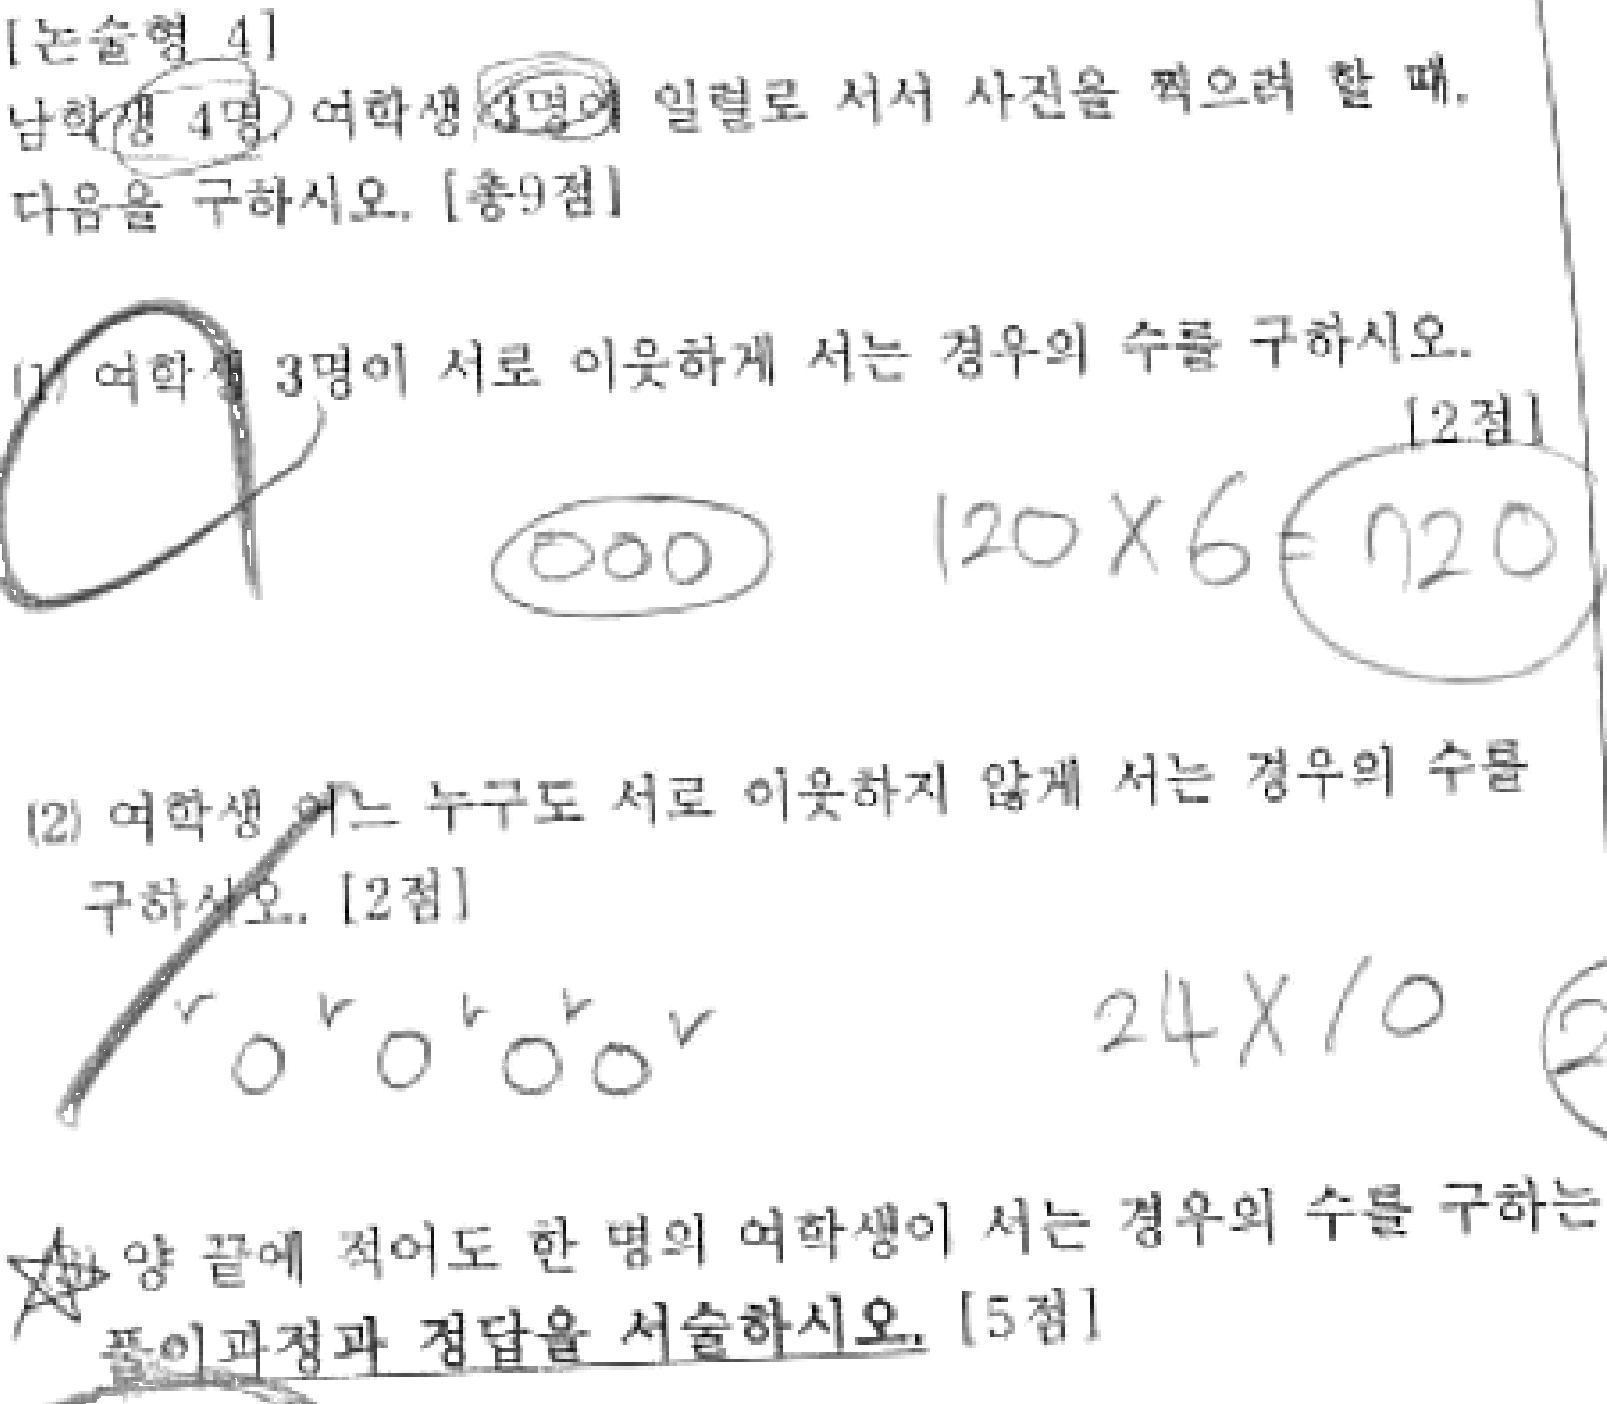 [논술형 4]
남학생 4명, 여학생 3명이 일렬로 서서 사진을 찍으려 할 때,
다음을 구하시오. [총9점]
(1) 여학생 3명이 서로 이웃하게 서는 경우의 수를 구하시오.
[2점]
120×6=720
(2) 여학생 어느 누구도 서로 이웃하지 않게 서는 경우의 수를
구하시오. [2점]
24×10
양 끝에 적어도 한 명의 여학생이 서는 경우의 수를 구하는
풀이과정과 정답을 서술하시오. [5점]